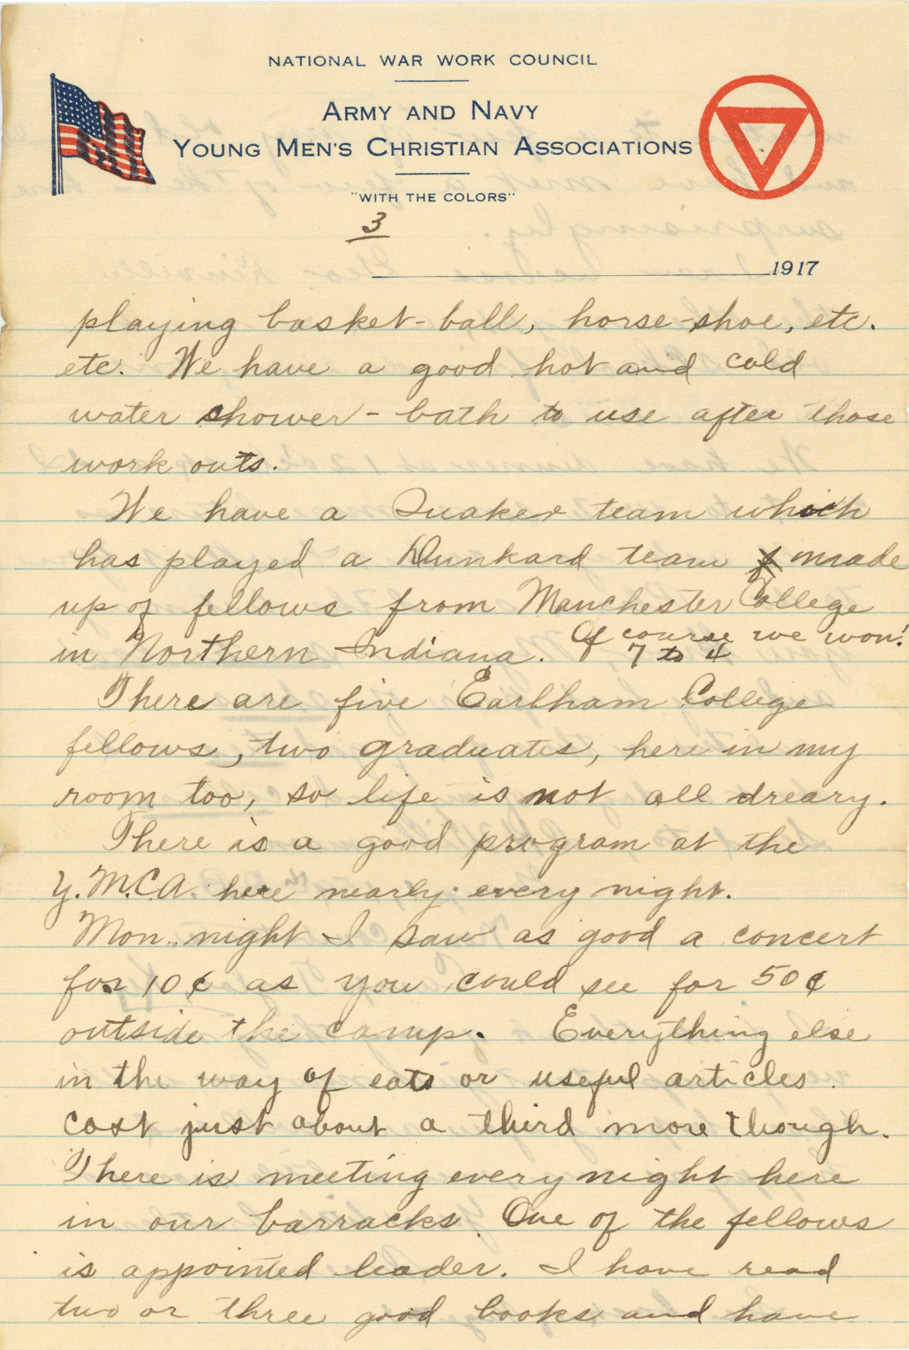 NATIONAL WAR WORK COUNCIL
ARMY AND NAVY
YOUNG MEN'S CHRISTIAN ASSOCIATIONS
"WITH THE COLORS"
3
1917
playing basket-ball, horse-shoe, etc.
etc. We have a good hot and cold
water shower-bath to use after those
work outs.
We have a Quaker team which
has played a Dunkard team made
up of fellows from Manchester College
in Northern Indiana. Of course we won!
7 to 4
There are five Earlham College
fellows, two graduates, here in my
room too, so life is not all dreary.
There is a good program at the
Y.M.C.A. here nearly every night.
Mon. night I saw as good a concert
for 10¢ as you could see for 50¢
outside the camp. Everything else
in the way of eats or useful articles
cost just about a third more though.
There is meeting every night here
in our barracks. One of the fellows
is appointed leader. I have read
two or three good books and have